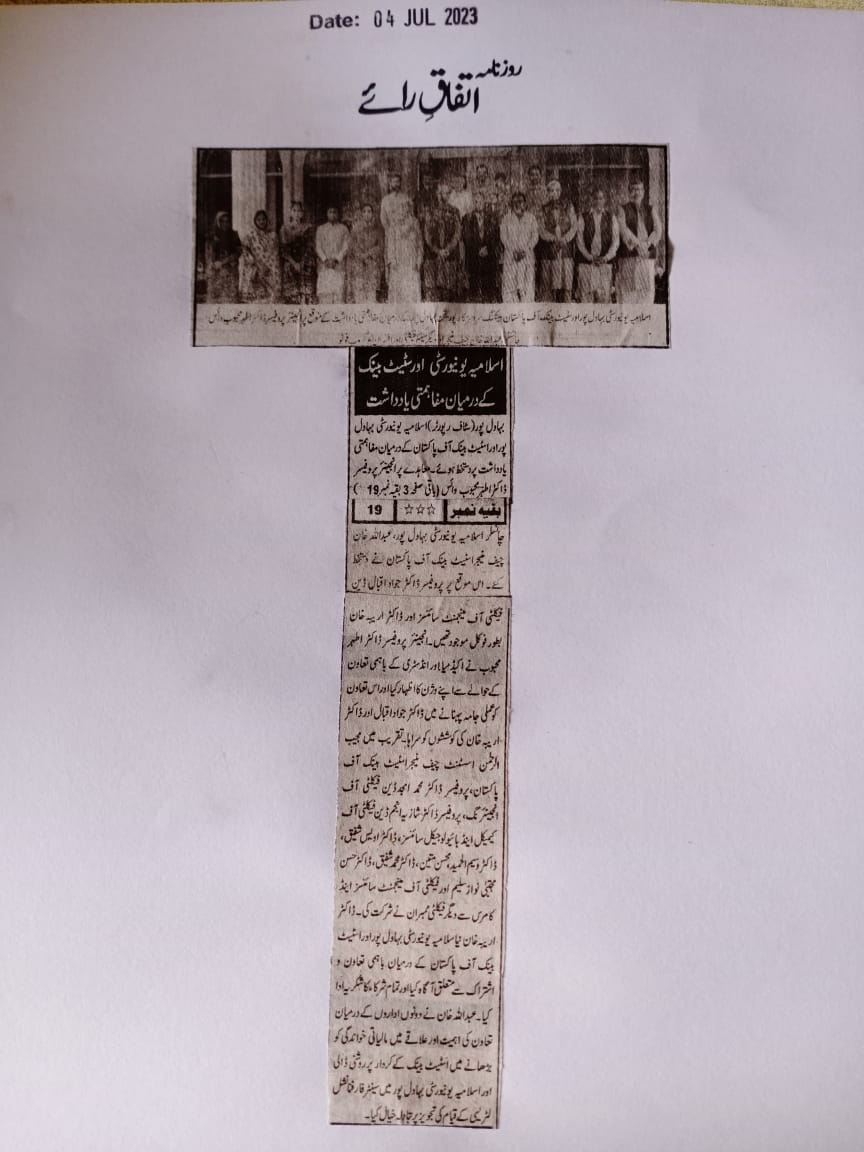 Date: 04 JUL 2023
روزنامہ
اتفاقِ رائے
اسلامیہ یونیورسٹی بہاول پور اور سٹیٹ بینک آف پاکستان بینکنگ سروسز کارپوریشن درمیان مفاہمتی یادداشت کے موقع پر انجینئر پروفیسر ڈاکٹر اطہر محبوب وائس
چانسلر عبداللہ خان چیف
اسلامیہ یونیورسٹی اور سٹیٹ بینک
کے درمیان مفاہمتی یادداشت
بہاول پور (سٹاف رپورٹر) اسلامیہ یونیورسٹی بہاول
پور اور اسٹیٹ بینک آف پاکستان کے درمیان مفاہمتی
یادداشت پر دستخط ہوئے۔ معاہدے پر انجینئر پروفیسر
ڈاکٹر اطہر محبوب وائس (باقی صفحہ 3 بقیہ نمبر 19)
بقیہ نمبر ☆☆☆ 19
چانسلر اسلامیہ یونیورسٹی بہاول پور، عبداللہ خان
چیف منیجر اسٹیٹ بینک آف پاکستان نے دستخط
کئے۔ اس موقع پر پروفیسر ڈاکٹر جواد اقبال ڈین
فیکلٹی آف مینجمنٹ سائنسز اور ڈاکٹر اریبہ خان
بطور فوکل موجود تھیں۔ انجینئر پروفیسر ڈاکٹر اطہر
محبوب نے اکیڈمیا اور انڈسٹری کے باہمی تعاون
کے حوالے سے اپنے وژن کا اظہار کیا اور اس تعاون
کو عملی جامہ پہنانے میں ڈاکٹر جواد اقبال اور ڈاکٹر
اریبہ خان کی کوششوں کو سراہا۔ تقریب میں مجیب
الرحمٰن اسسٹنٹ چیف منیجر اسٹیٹ بینک آف
پاکستان، پروفیسر ڈاکٹر محمد امجد ڈین فیکلٹی آف
انجینئرنگ، پروفیسر ڈاکٹر شازیہ انجم ڈین فیکلٹی آف
کیمیکل اینڈ بائیولوجیکل سائنسز، ڈاکٹر اویس شفیق،
ڈاکٹر وسیم الحمید، محسن متین، ڈاکٹر محمد شفیق، ڈاکٹر حسن
مجتبیٰ نواز سلیم اور فیکلٹی آف مینجمنٹ سائنسز اینڈ
کامرس سے دیگر فیکلٹی ممبران نے شرکت کی۔ ڈاکٹر
اریبہ خان نیا سلامیہ یونیورسٹی بہاول پور اور اسٹیٹ
بینک آف پاکستان کے درمیان باہمی تعاون و
اشتراک سے متعلق آگاہ کیا اور تمام شرکاء کا شکریہ ادا
کیا۔ عبداللہ خان نے دونوں اداروں کے درمیان
تعاون کی اہمیت اور علاقے میں مالیاتی خواندگی کو
بڑھانے میں اسٹیٹ بینک کے کردار پر روشنی ڈالی
اور اسلامیہ یونیورسٹی بہاول پور میں سینٹر فار فنانشل
لٹریسی کے قیام کی تجویز پر تبادلہ خیال کیا۔